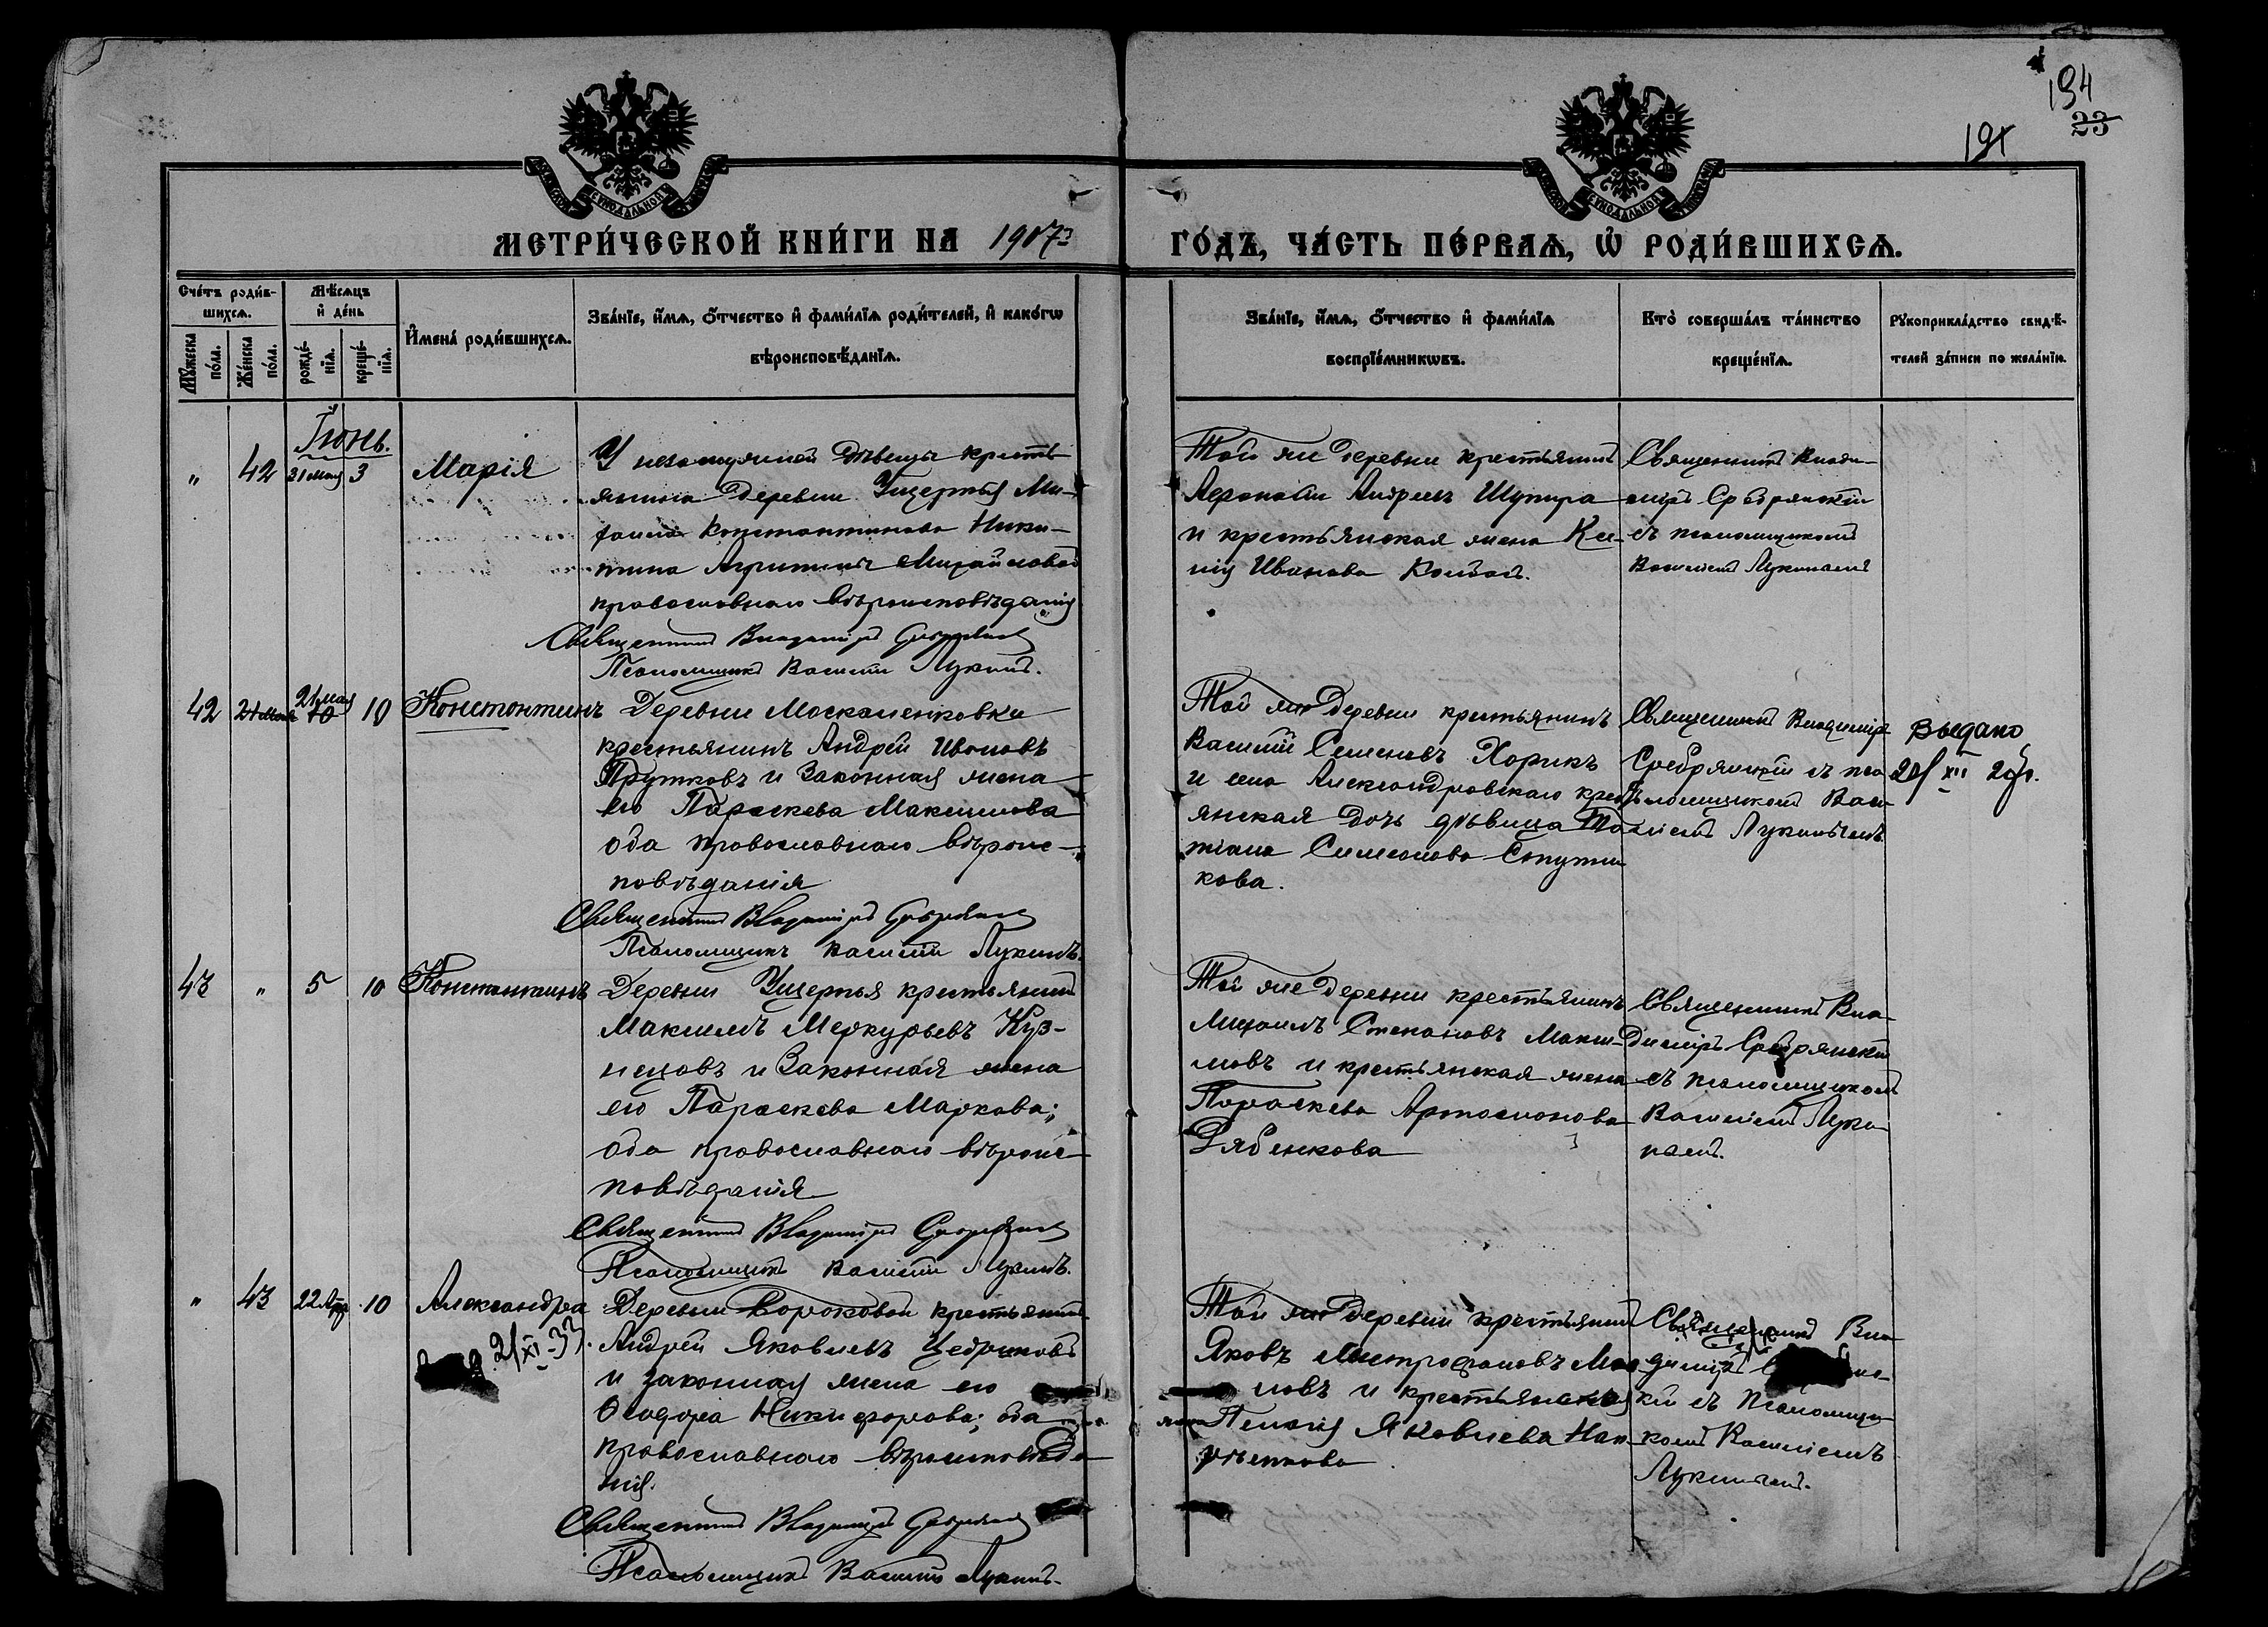 194
23
191
МЕТРИ́ЧЕСКОЙ КНИ́ГИ НА 1907й
ГО́ДЪ, ЧА́СТЬ ПЕ́РВАѦ, Ѽ РОДИ́ВШИХСѦ.
Сче́тъ роди́в-
шихсѧ.
Мѣ́сѧцъ
и҆ де́нь
И҆мена̀ роди́вшихсѧ.
Зва́нїе, и҆́мѧ, ѻ҆́тчество и҆ фами́лїѧ роди́телей, и҆ како́гѡ
вѣроисповѣ́данїѧ.
Мꙋ́жеска
по́ла.
Же́нска
по́ла.
рожде́-
нїѧ.
креще́-
нїѧ.
Зва́нїе, и҆́мѧ, ѻ҆́тчество и҆ фами́лїѧ
воспрїе́мникѡвъ.
Кто̀ соверша́лъ та́инство
креще́нїѧ.
Рꙋкоприкла́дство свидѣ́-
телей за́писи по жела́нїю.
Іюнь.
" 42 31 мая 3 Марія
У незамужней дѣвицы кресть-
янина деревни Ущерпья Ми-
хаила Константинова Ники-
тина Михайловой
православнаго вѣроисповѣданія
Священникъ Владиміръ Сребрянскій
Псаломщикъ Василій Лукинъ.
Той же деревни крестьянинъ
Андреевъ
и крестьянская жена Ксе-
нія Иванова
Священникъ Влади-
міръ Сребрянскій
съ псаломщикомъ
Василіемъ Лукинымъ
42 21 мая 10 Константинъ
Деревни Москаленковки
крестьянинъ Андрей Ивановъ
Прутковъ и законная жена
его Параскева Максимова
оба православнаго вѣроис-
повѣданія
Священникъ Владиміръ Сребрянскій
Псаломщикъ Василій Лукинъ.
Той же деревни крестьянинъ
Василій Семеновъ Хорикъ
и села Александровскаго кресть-
янская дочь дѣвица Та-
тіана Симеонова
кова.
Священникъ Владиміръ
Сребрянскій съ пса-
ломщикомъ Васи-
ліемъ Лукинымъ
Выдано
XII
43 " 5 10 Константинъ
Деревни Ущерпья крестьянинъ
Максимъ Меркурьевъ Куз-
нецовъ и законная жена
его Параскева Маркова;
оба православнаго вѣроис-
повѣданія
Священникъ Владиміръ Сребрянскій
Псаломщикъ Василій Лукинъ.
Той же деревни крестьянинъ
Михаилъ Степановъ Макси-
мовъ и крестьянская жена
Параскева Артамонова
Рябенкова
Священникъ Вла-
диміръ Сребрянскій
съ псаломщикомъ
Василіемъ Луки-
нымъ.
" 43 22 Апр. 10 Александра
21/XI-33.
Деревни Вороковой крестьянинъ
Андрей Яковлевъ Цебриковъ
и законная жена его
Ѳеодора Никифорова; оба
православнаго вѣроисповѣда-
нія.
Священникъ Владиміръ Сребрянскій
Псаломщикъ Василій Лукинъ.
Той же деревни крестьянинъ
Яковъ Митрофановъ
и крестьянская
жена Пелагія Яковлева
Священникъ Вла-
диміръ
кій съ псаломщи-
комъ Василіемъ
Лукинымъ.